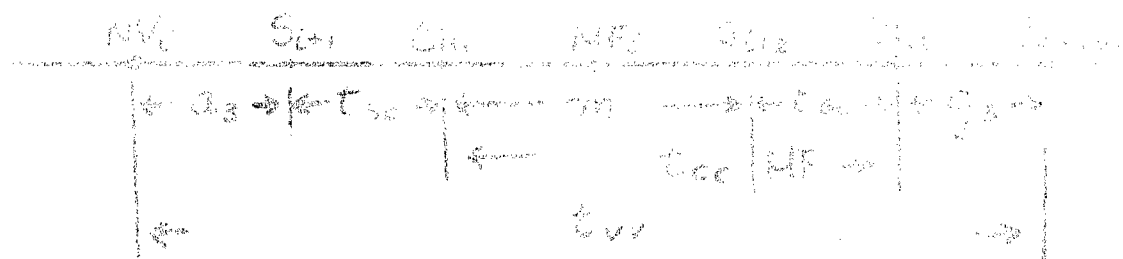 NVi Si+1 Ci+1 MFi Si+2
a3 tsc m tsc a3
tcc | MF
tvv